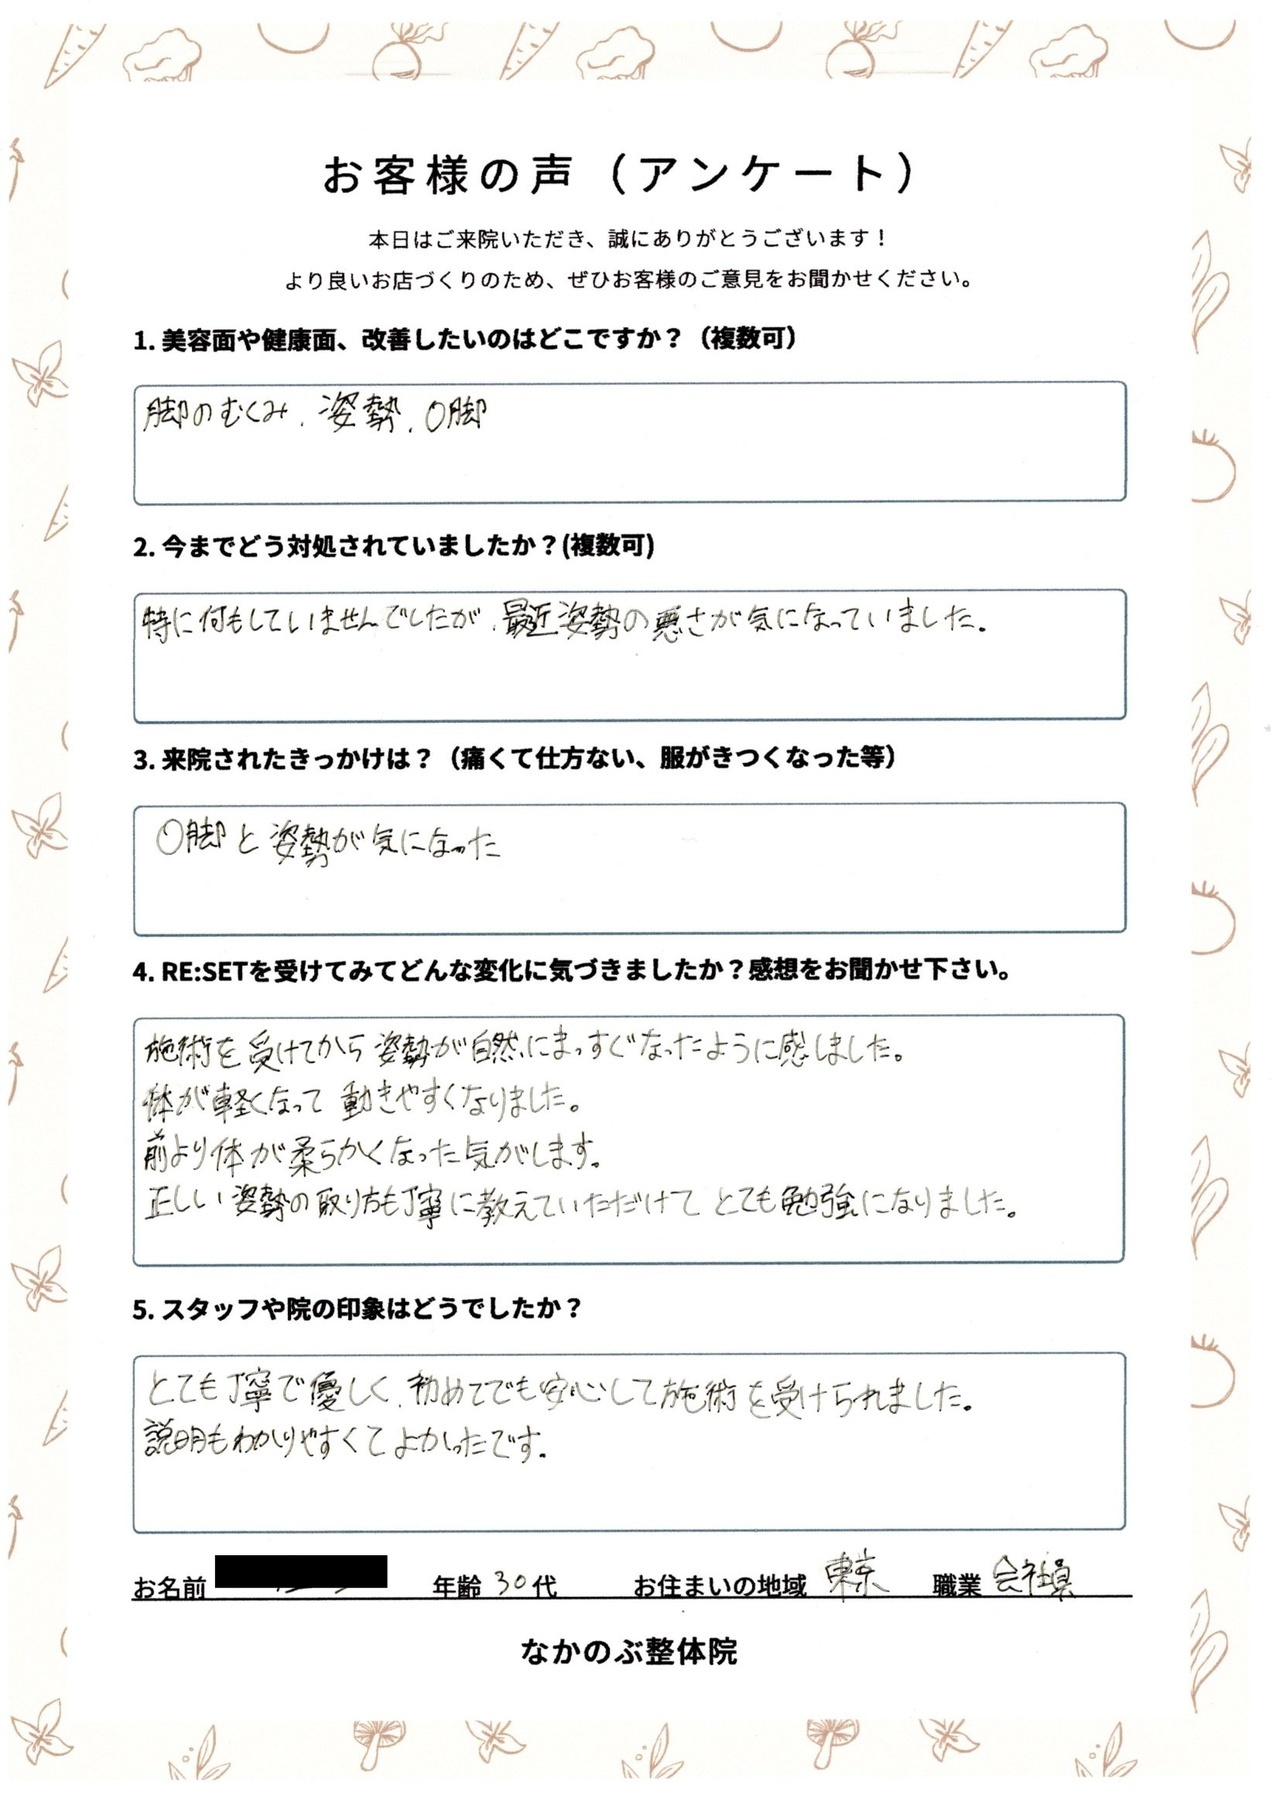 お客様の声（アンケート）
本日はご来院いただき、誠にありがとうございます！
より良いお店づくりのため、ぜひお客様のご意見をお聞かせください。
1. 美容面や健康面、改善したいのはどこですか？（複数可）
脚のむくみ、姿勢、O脚
2. 今までどう対処されていましたか？(複数可)
特に何もしていませんでしたが、最近姿勢の悪さが気になっていました。
3. 来院されたきっかけは？（痛くて仕方ない、服がきつくなった等）
O脚と姿勢が気になった
4. RE:SETを受けてみてどんな変化に気づきましたか？感想をお聞かせ下さい。
施術を受けてから姿勢が自然にまっすぐなったように感しました。
体が軽くなって動きやすくなりました。
前より体が柔らかくなった気がします。
正しい姿勢の取り方も丁寧に教えていただけてとても勉強になりました。
5. スタッフや院の印象はどうでしたか？
とても丁寧で優しく、初めてでも安心して施術を受けられました。
説明もわかりやすくてよかったです。
お名前 年齢 30代 お住まいの地域 東京 職業 会社員
なかのぶ整体院